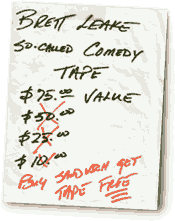 BRETT LEAKE
SO-CALLED COMEDY
TAPE
$75.00 VALUE
$50.00
$25.00
$10.00
BUY SANDWICH GET
TAPE FREE